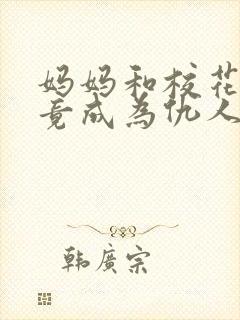 妈妈和校花
竟成为仇人
韩廣宗